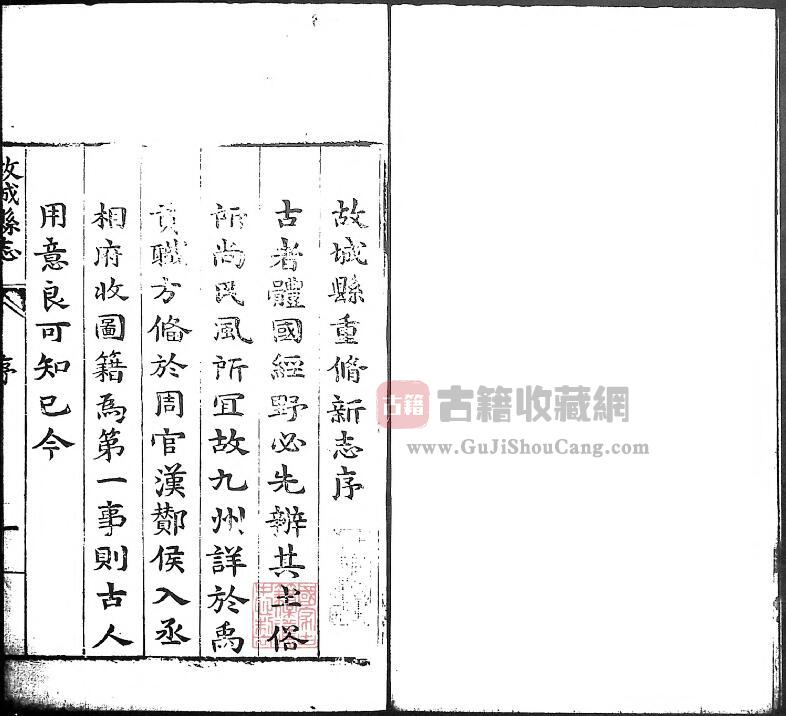 故城縣重脩新志序
古者體國經野必先辨其土俗
所尚民風所宜故九州詳於禹
貢職方俻於周官漢酇侯入丞
相府收圖籍爲第一事則古人
用意良可知已今
故城縣志
序
一
古籍
古籍收藏網
www.GuJiShouCang.com